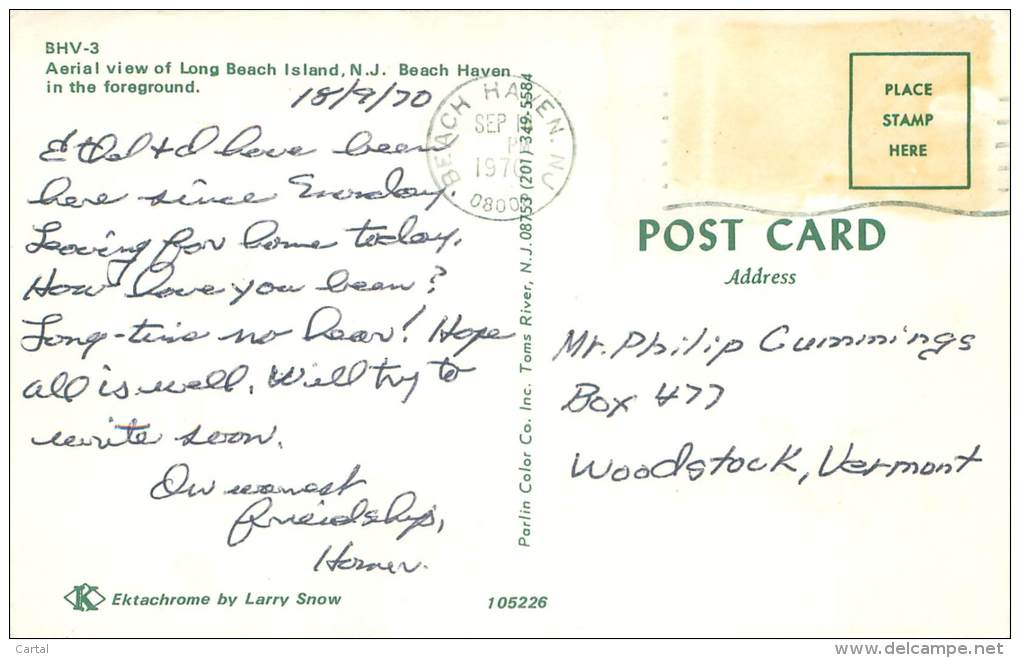 BHV-3
Aerial view of Long Beach Island, N.J. Beach Haven
in the foreground.
18/9/70
Ethel & I have been
here since
Leaving for home today.
How have you been?
Long-time no hear! Hope
all is well. Will try to
write soon.
Our warmest
friendship,
Homer.
Ektachrome by Larry Snow
105226
Parlin Color Co. Inc. Toms River, N.J. 08753 (201) 349-5584
BEACH HAVEN. NJ
SEP
PM
1970
0800
PLACE
STAMP
HERE
POST CARD
Address
Mr. Philip Cummings
Box 477
Woodstock, Vermont
Cartal
delcampe.net